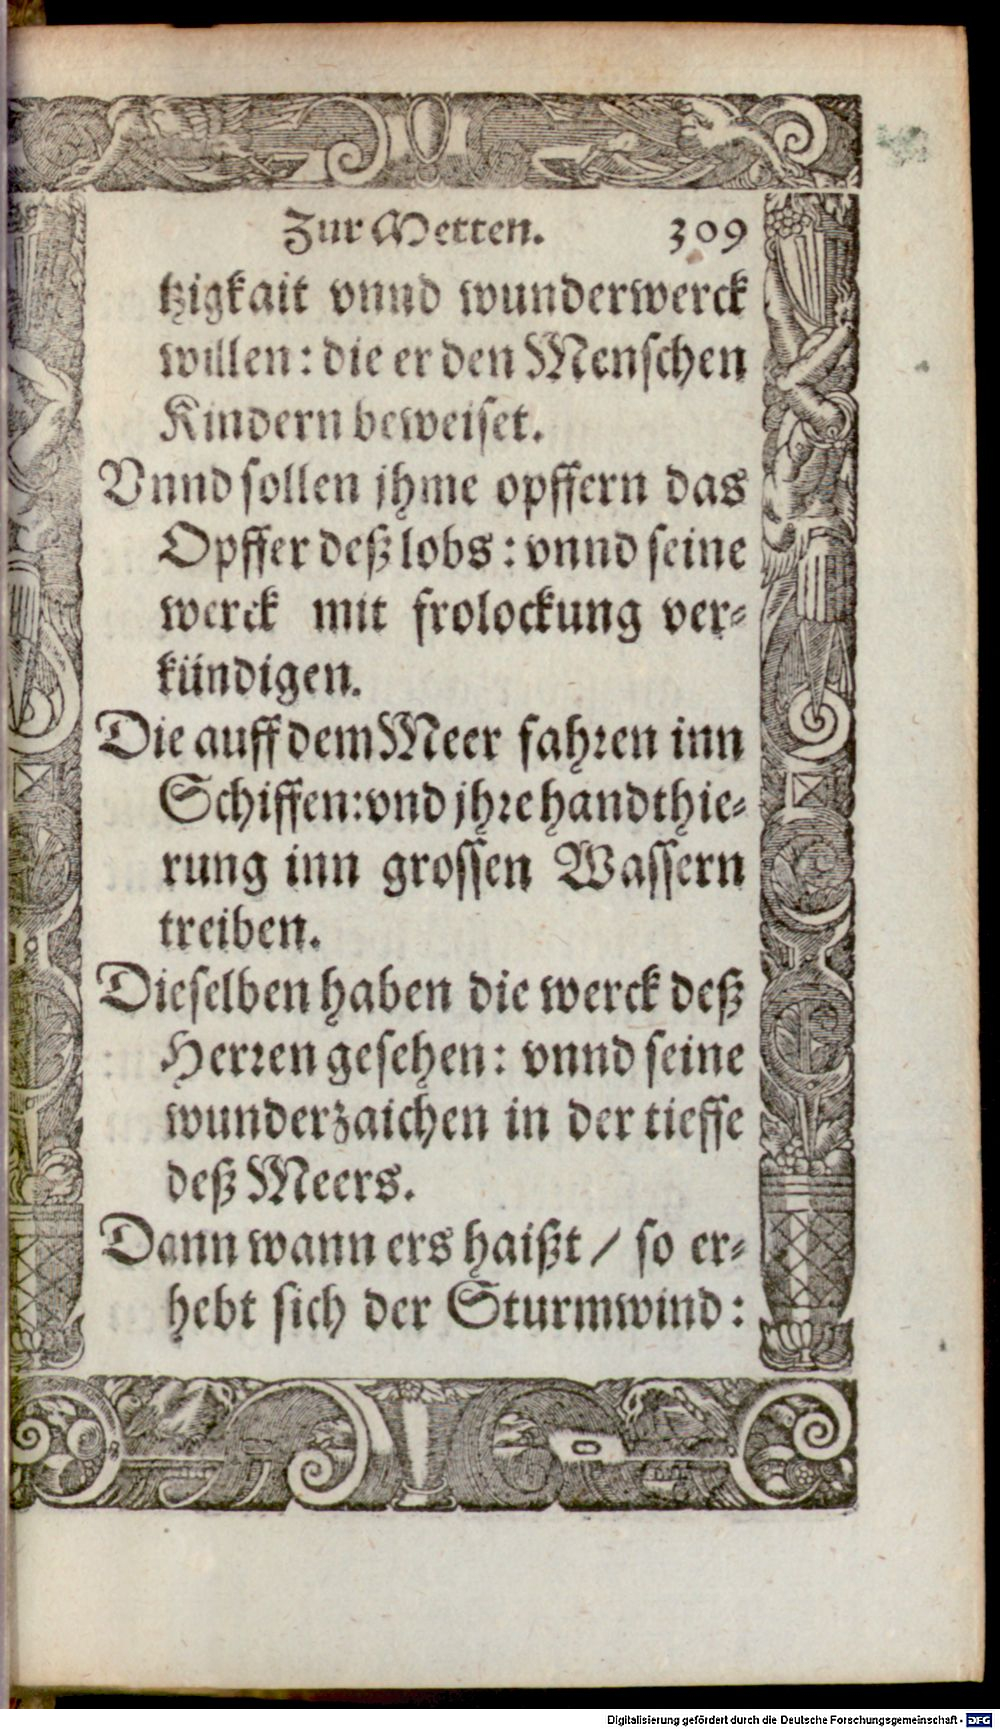 Zur Metten. 309
tzigkait vnnd wunderwerck
willen: die er den Menschen
Kindern beweiset.
Vnnd sollen jhme opffern das
Opffer deß lobs: vnnd seine
werck mit frolockung ver-
kündigen.
Die auff dem Meer fahren inn
Schiffen: vnd jhre handthie-
rung inn grossen Wassern
treiben.
Dieselben haben die werck deß
Herren gesehen: vnnd seine
wunderzaichen in der tieffe
deß Meers.
Dann wann ers haißt / so er-
hebt sich der Sturmwind:
Digitalisierung gefördert durch die Deutsche Forschungsgemeinschaft - DFG